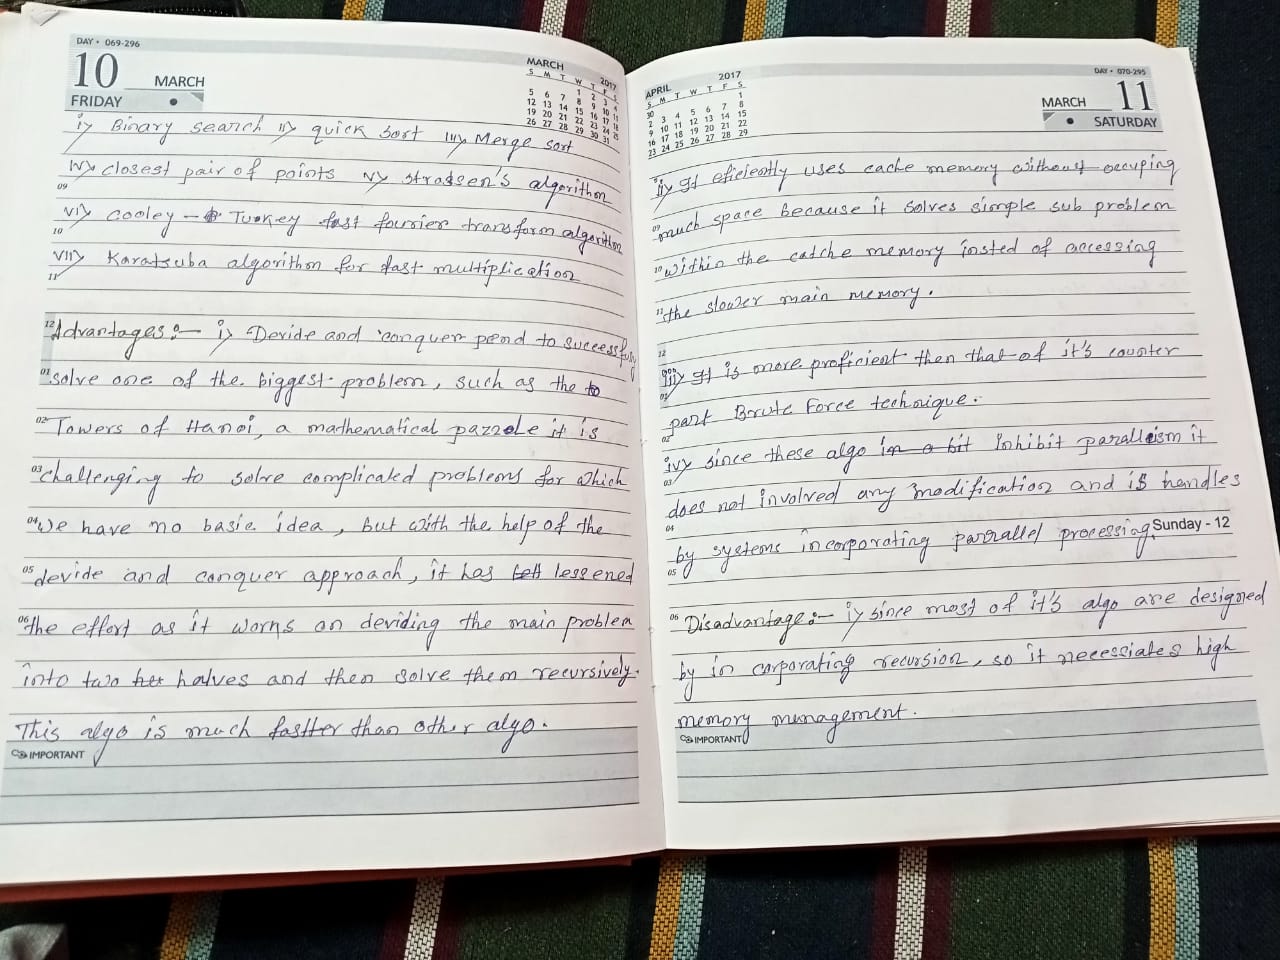 DAY - 069-296
10 MARCH
FRIDAY
MARCH 2017
S M T W T F S
1 2 3 4
5 6 7 8 9 10 11
12 13 14 15 16 17 18
19 20 21 22 23 24 25
26 27 28 29 30 31
i) Binary search ii) quick sort iii) Merge sort
iv) closest pair of points v) strassen's algorithm
09
vi) cooley - Turkey fast fourier transform algorithm
10
vii) Karatsuba algorithm for fast multiplication
11
12 Advantages:- i) Devide and conquer pend to successfully
01 solve one of the biggest problem, such as the to
02 Towers of Hanoi, a mathematical pazzele it is
03 challenging to solve complicated problems for which
04 we have no basic idea, but with the help of the
05 devide and conquer approach, it has lessened
06 the effort as it works on deviding the main problem
into two halves and then solve them recursively.
This algo is much fastter than other algo.
IMPORTANT
APRIL 2017
S M T W T F S
30 1
2 3 4 5 6 7 8
9 10 11 12 13 14 15
16 17 18 19 20 21 22
23 24 25 26 27 28 29
DAY - 070-295
MARCH 11
SATURDAY
ii) It eficiently uses cache memory without occuping
09 much space because it solves simple sub problem
10 within the catche memory insted of accessing
11 the slower main memory.
12
iii) It is more proficient then that of it's counter
01
part Brute Force technique.
02
iv) since these algo in a bit inhibit parallelism it
03
does not involved any modification and is handles
04
by systems incorporating parralled processing.
Sunday - 12
05
06 Disadvantage:- i) since most of it's algo are designed
by in corporating recursion, so it necessiates high
memory management.
IMPORTANT